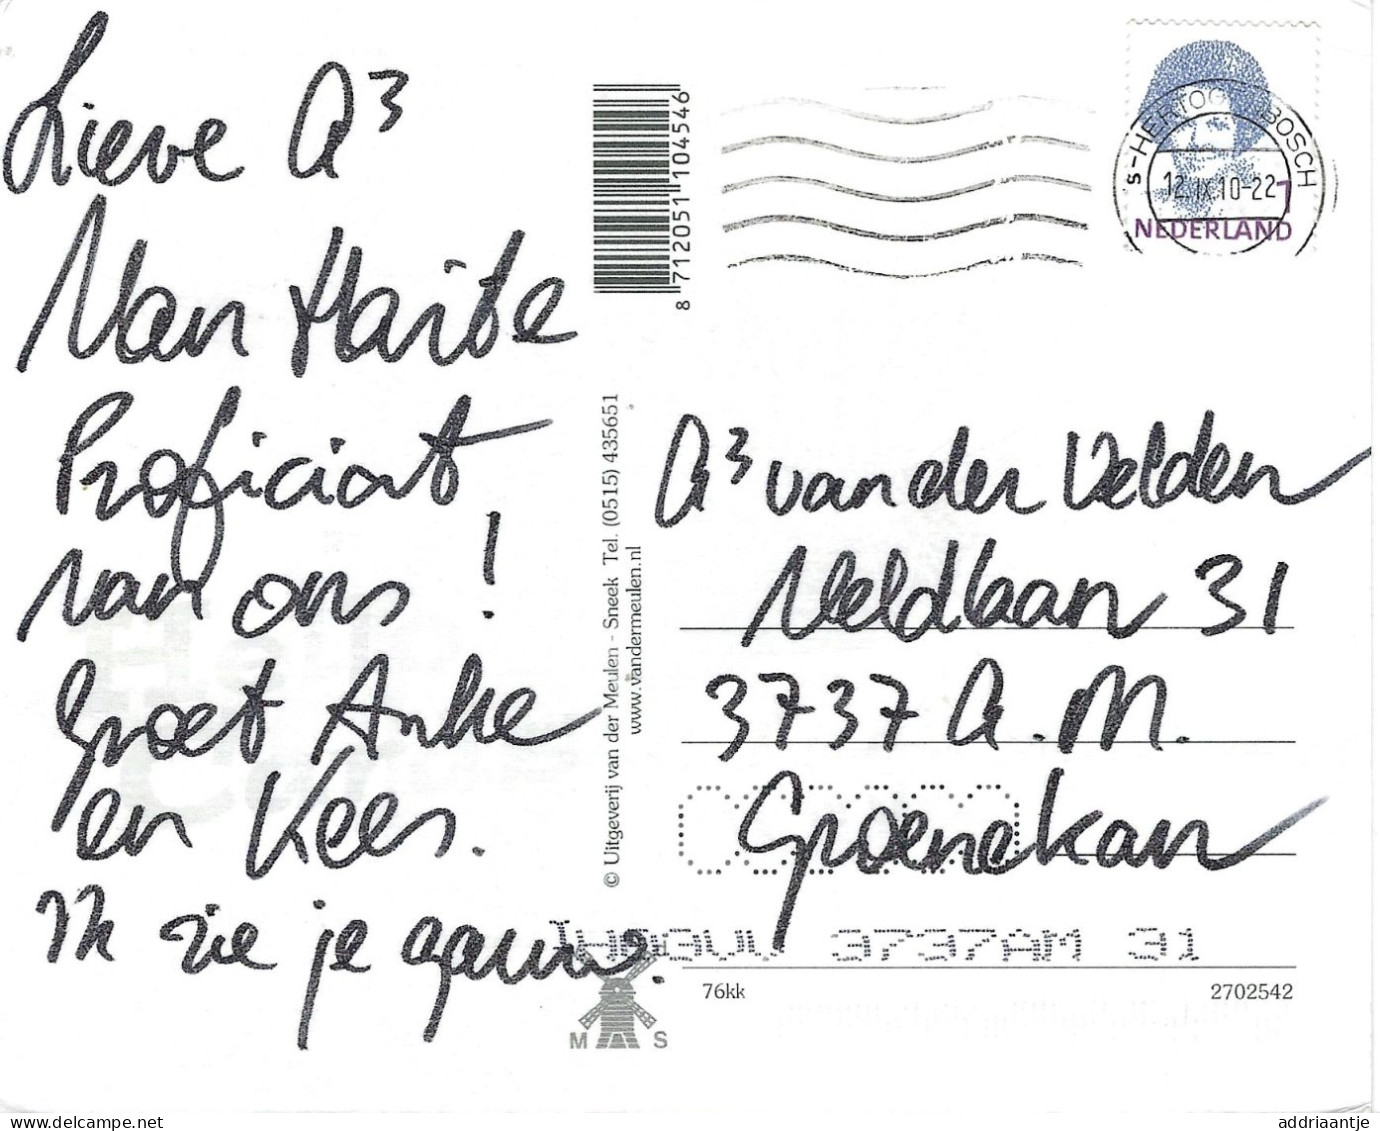 Lieve A³
Van Harte
Proficiat
van ons !
Groet Anke
en Kees.
Ik zie je gauw.
8 712051 104546
© Uitgeverij van der Meulen - Sneek Tel. (0515) 435651
www.vandermeulen.nl
M S
's-HERTOGENBOSCH
12.IX.10-22
1
NEDERLAND
A³ van der Velden
Veldlaan 31
3737 A.M.
Groenekan
3737AM 31
76kk 2702542
addriaantje